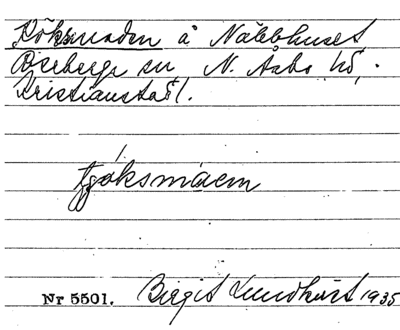 Köksmaden å Näbbhuset
Riseberga sn N. Åsbo hd,
Kristianstads l.
tjöksmáen
Nr 5501. Birgit Lundkvist 1935